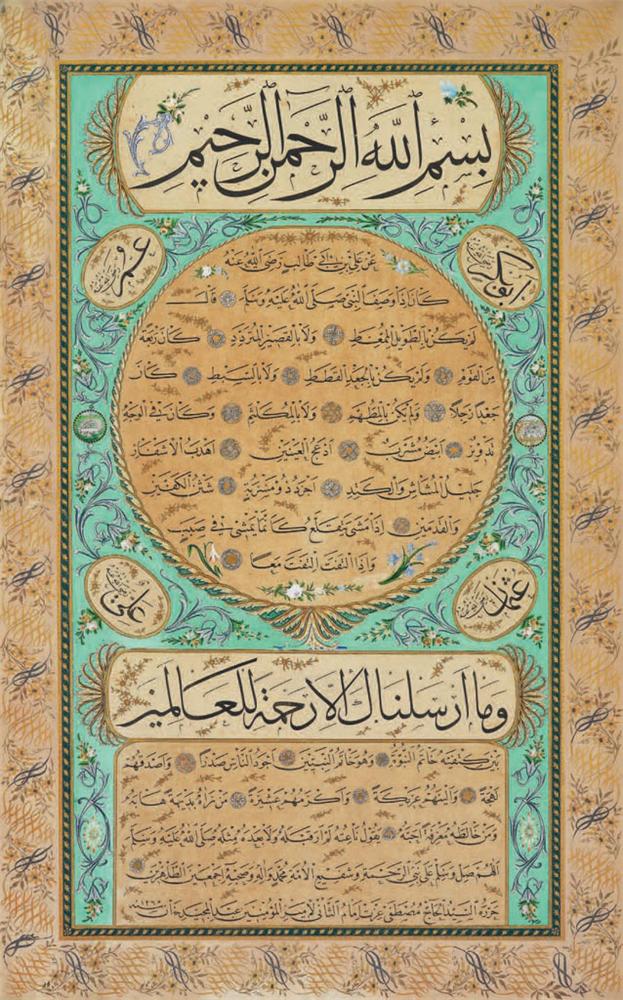 بسم الله الرحمن الرحيم
ابو بكر رضي الله عنه
عمر رضي الله عنه
عن علي بن ابي طالب رضي الله عنه
كان اذا وصف النبي صلى الله عليه وسلم قال
لم يكن بالطويل الممغط ولا بالقصير المتردد كان ربعة
من القوم ولم يكن بالجعد القطط ولا بالسبط كان
جعدا رجلا ولم يكن بالمطهم ولا بالمكلثم وكان في الوجه
تدوير ابيض مشرب ادعج العينين اهدب الاشفار
جليل المشاش والكتد اجرد ذو مسربة شثن الكفين
والقدمين اذا مشى يتقلع كانما يمشي في صبب
واذا التفت التفت معا
عثمان رضي الله عنه
علي رضي الله عنه
وما ارسلناك الا رحمة للعالمين
بين كتفيه خاتم النبوة وهو خاتم النبيين اجود الناس صدرا واصدقهم
لهجة والينهم عريكة واكرمهم عشيرة من رآه بديهة هابه
ومن خالطه معرفة احبه يقول ناعته لم ار قبله ولا بعده مثله صلى الله عليه وسلم
اللهم صل وسلم على نبي الرحمة وشفيع الامة محمد واله وصحبه اجمعين الطاهرين
حرره السيد الحاج مصطفى عزت امام الثاني لامير المؤمنين عبد المجيد خان